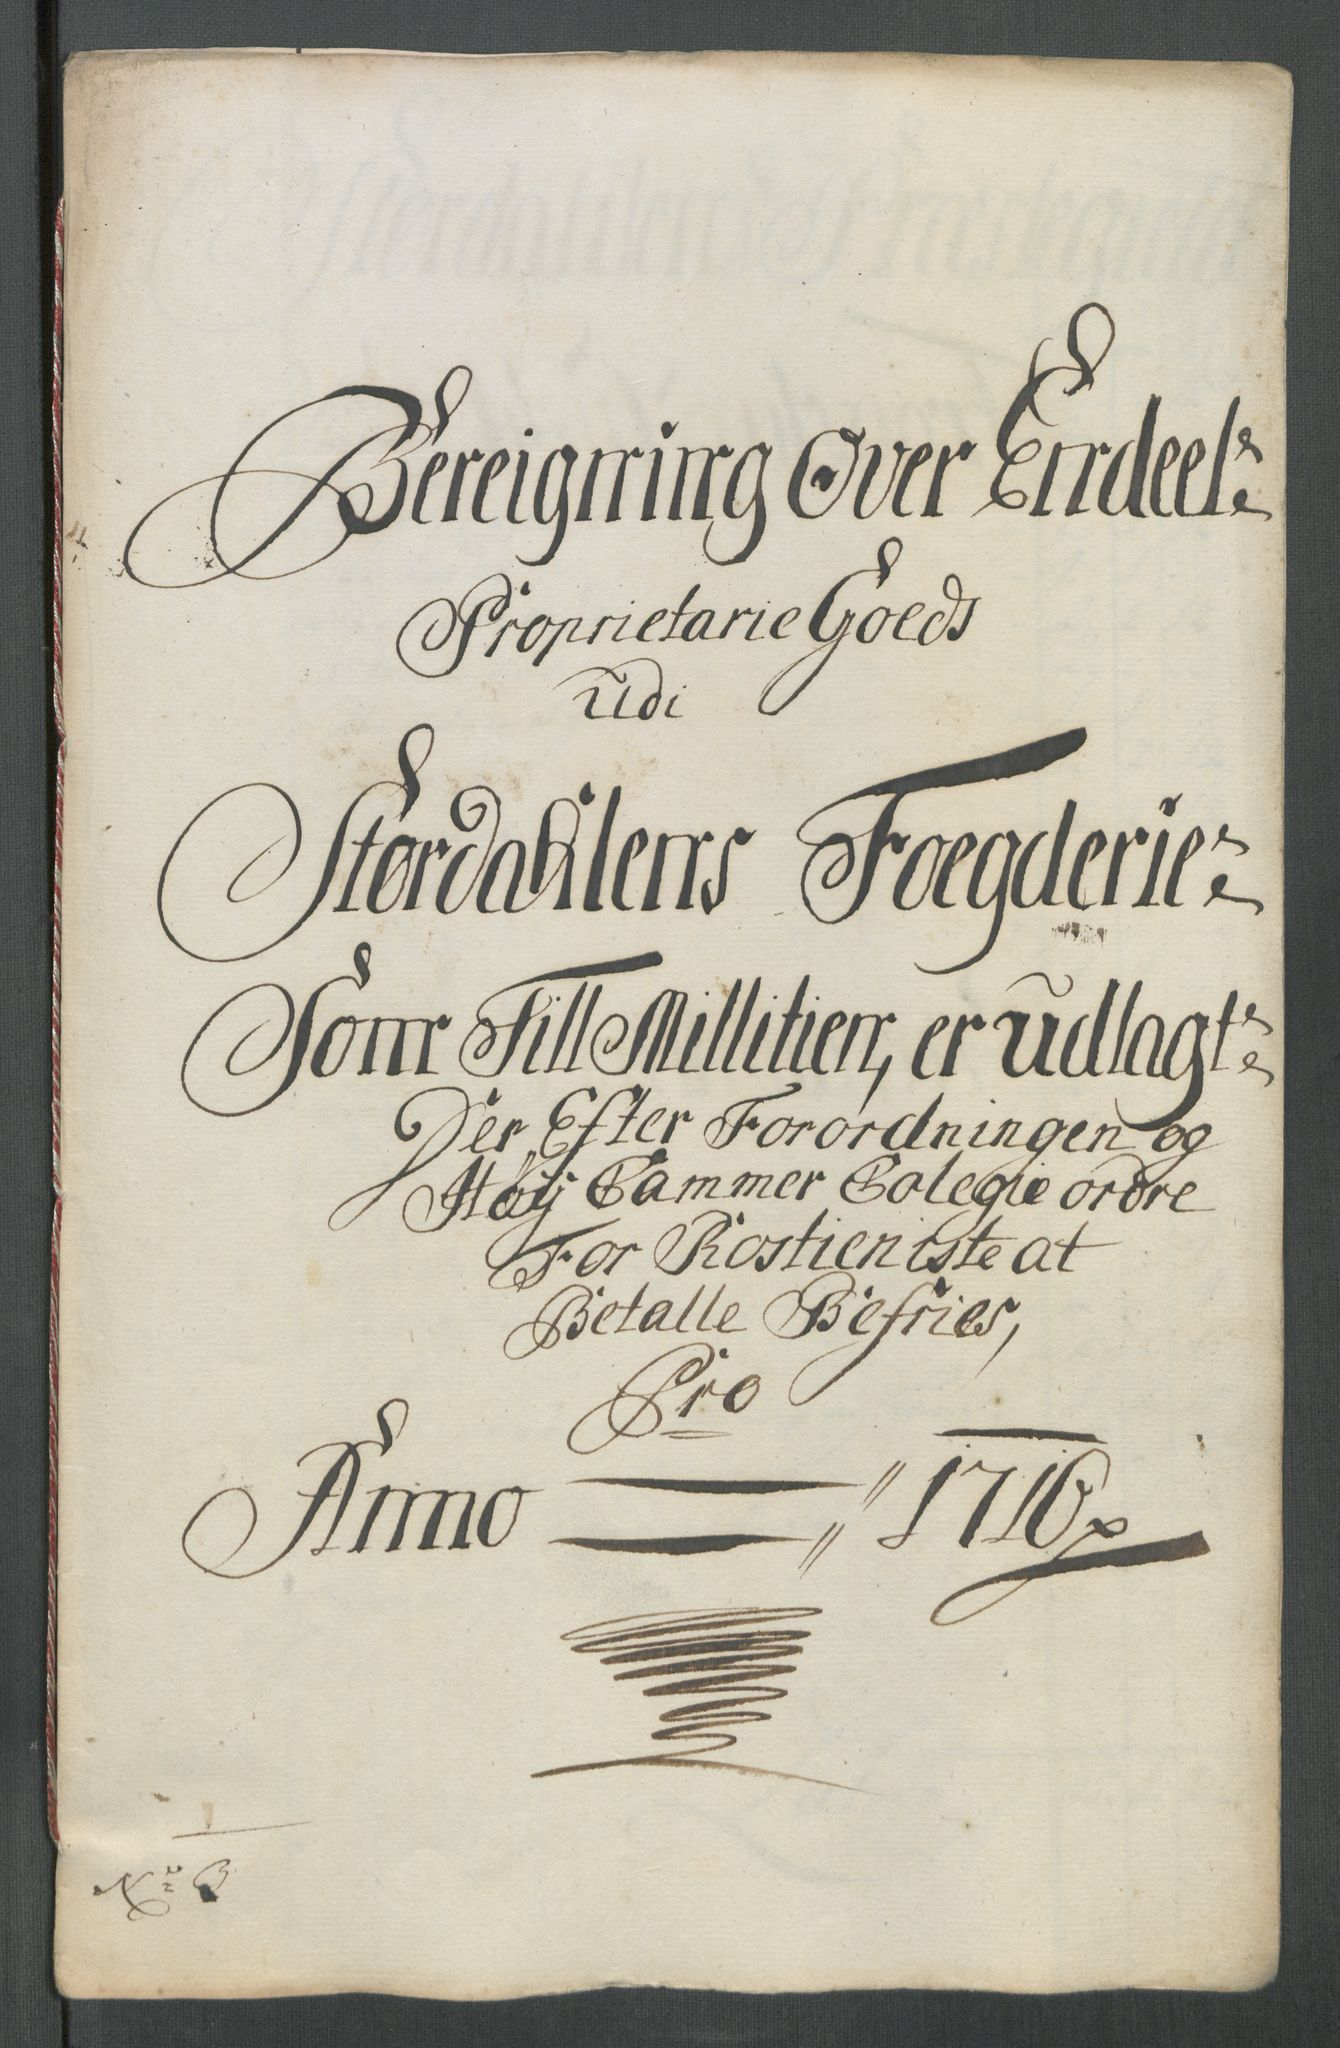 Bereigning Over Endeel
Proprietarie Goeds
Udi
Størdahlens Foegderie
Som Till Millitien, er udlagt
Der Efter Forordningen og
Høÿ Cammer Colegie ordre
For Rostieniste at
Betalle Befries,
Pro
Anno 1716
No 3